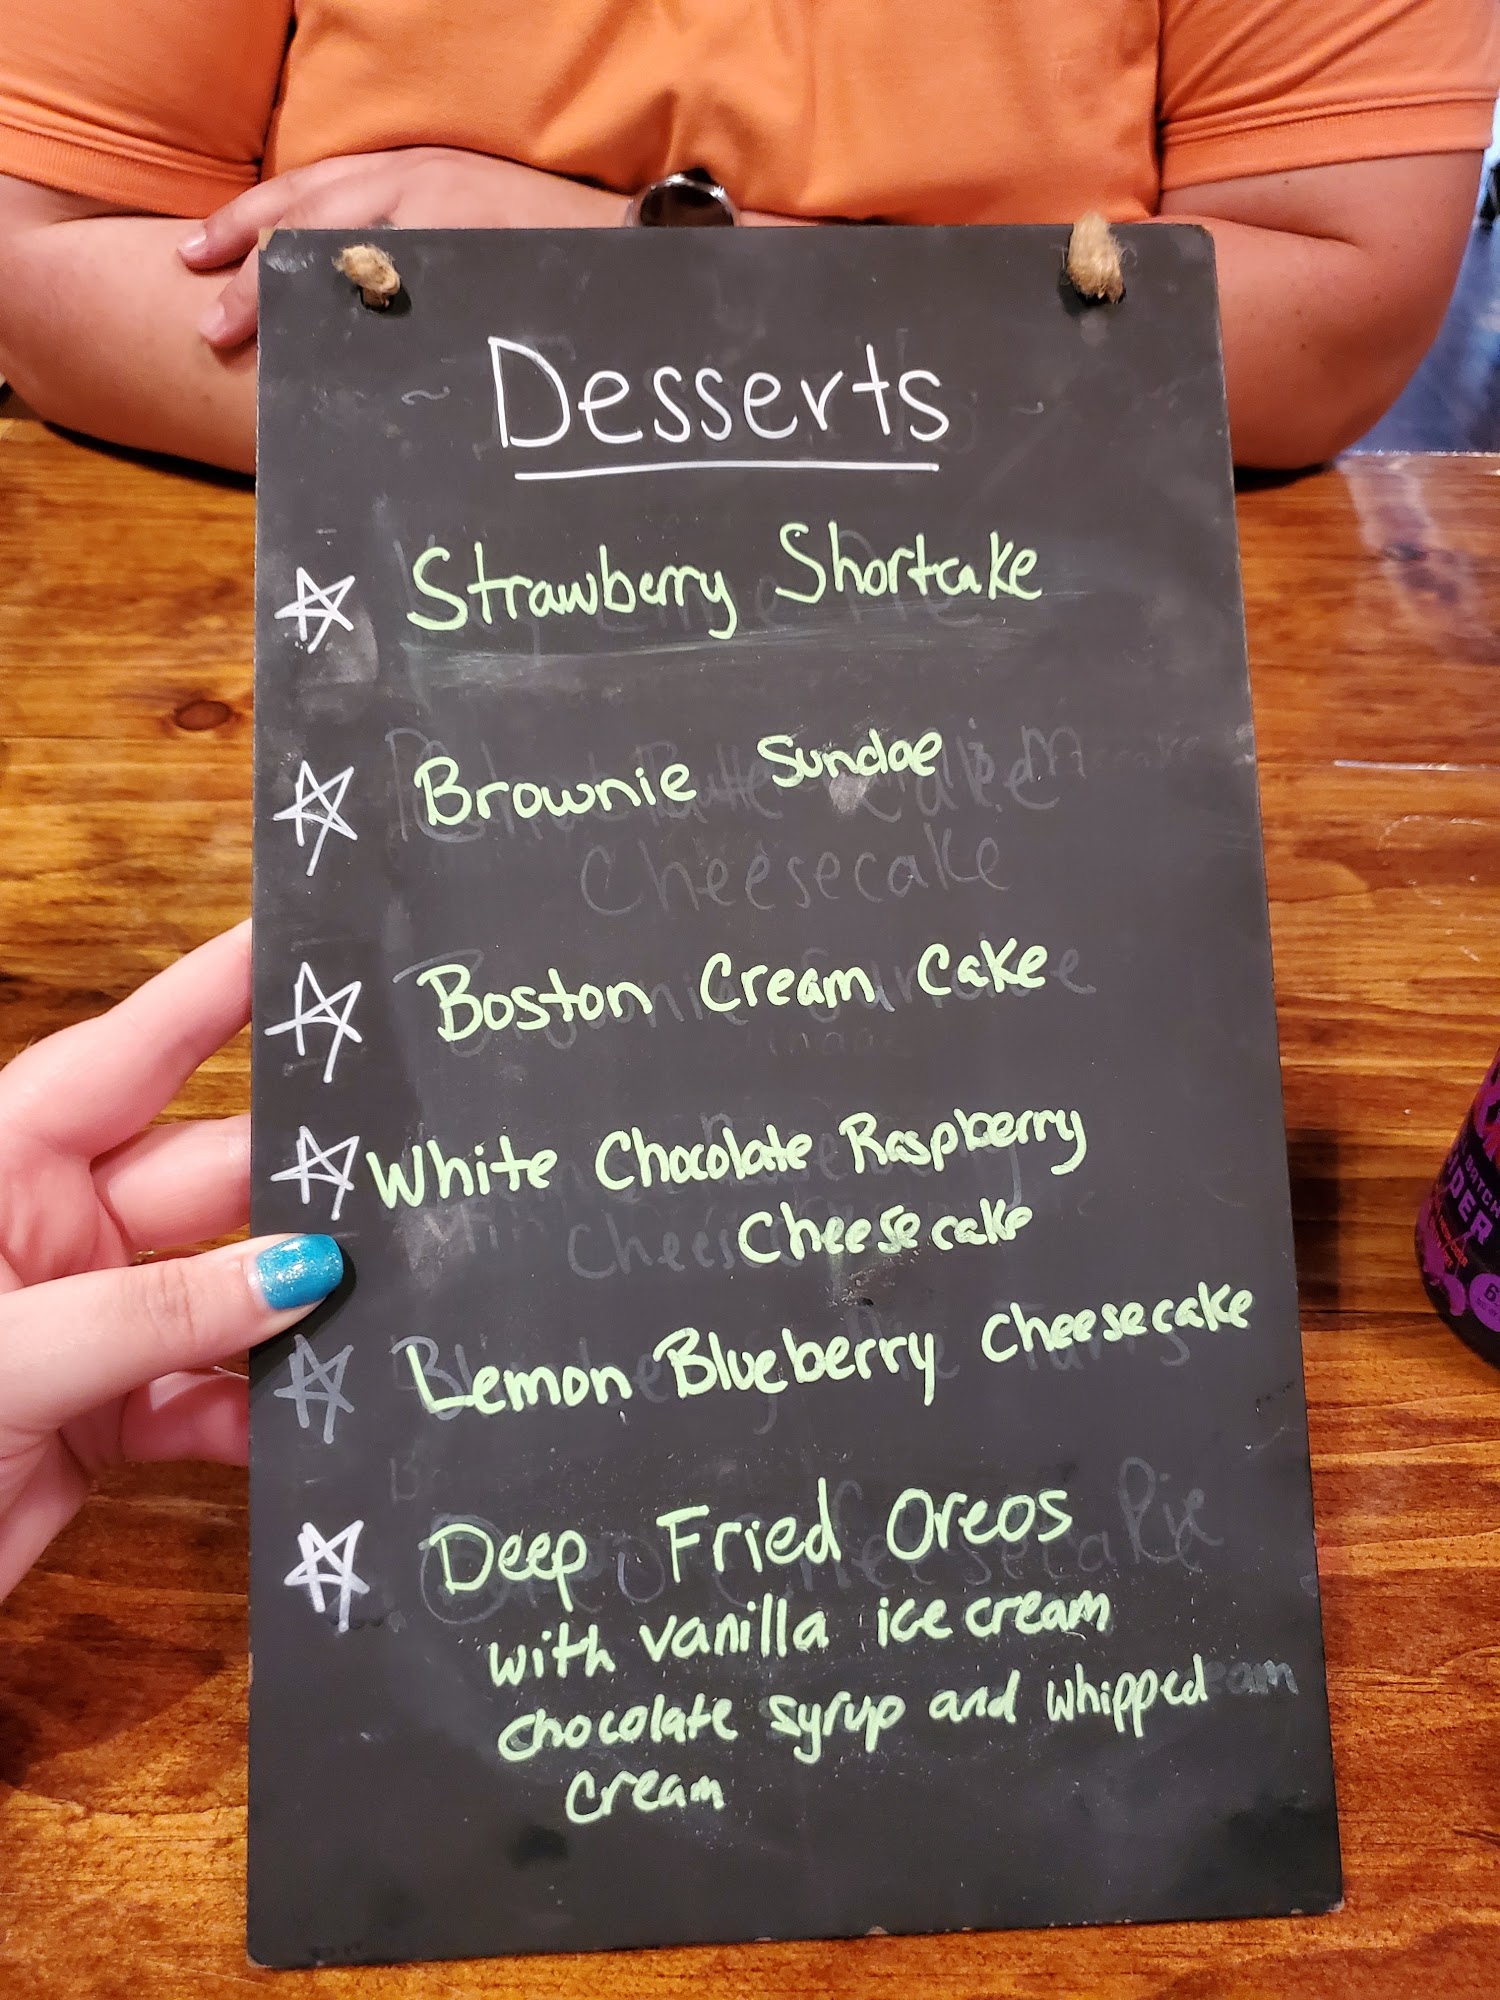 Desserts
Strawberry Shortcake
Brownie Sundae
Boston Cream Cake
White Chocolate Raspberry
Cheesecake
Lemon Blueberry Cheesecake
Deep Fried Oreos
with vanilla ice cream
chocolate syrup and whipped
cream